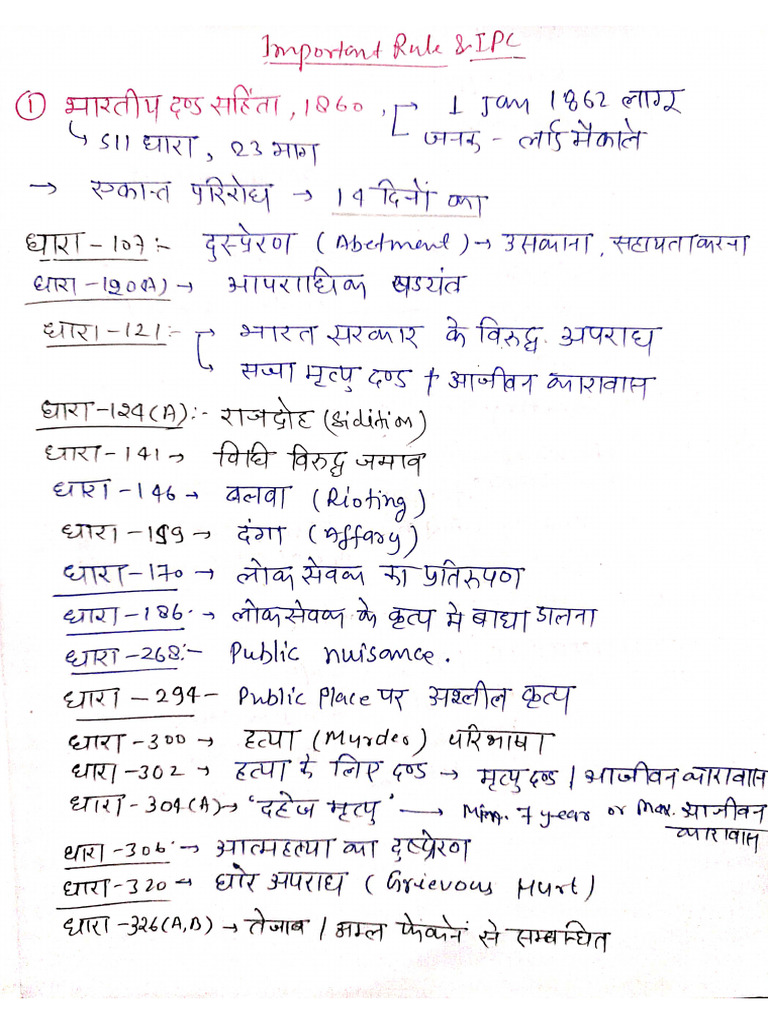 Important Rule & IPC
① भारतीय दण्ड संहिता, 1860, → 1 Jan 1862 लागू
↳ 511 धारा, 23 भाग जनक - लार्ड मैकाले
→ एकान्त परिरोध → 14 दिनों का
धारा-107:- दुस्प्रेरण (Abetment) → उसकाना, सहायता करना
धारा-120(A) → आपराधिक षडयंत
धारा-121:- → भारत सरकार के विरुद्ध अपराध
↳ सजा मृत्यु दण्ड + आजीवन कारावास
धारा-124(A):- राजद्रोह (Sidition)
धारा-141 → विधि विरुद्ध जमाव
धारा-146 → बलवा (Rioting)
धारा-159 → दंगा (Affary)
धारा-170 → लोक सेवक का प्रतिरुपण
धारा-186 → लोकसेवक के कृत्य मे बाधा डालना
धारा-268:- Public nuisance.
धारा-294- Public Place पर अश्लील कृत्य
धारा-300 → हत्या (Murder) परिभाषा
धारा-302 → हत्या के लिए दण्ड → मृत्यु दण्ड / आजीवन कारावास
धारा-304(A) → 'दहेज मृत्यु' → Min. 7 year or Max. आजीवन
कारावास
धारा-306 → आत्महत्या का दुष्प्रेरण
धारा-320 → घोर अपराध (Grievous Hurt)
धारा-326(A,B) → तेजाब / अम्ल फेकनें से सम्बन्धित